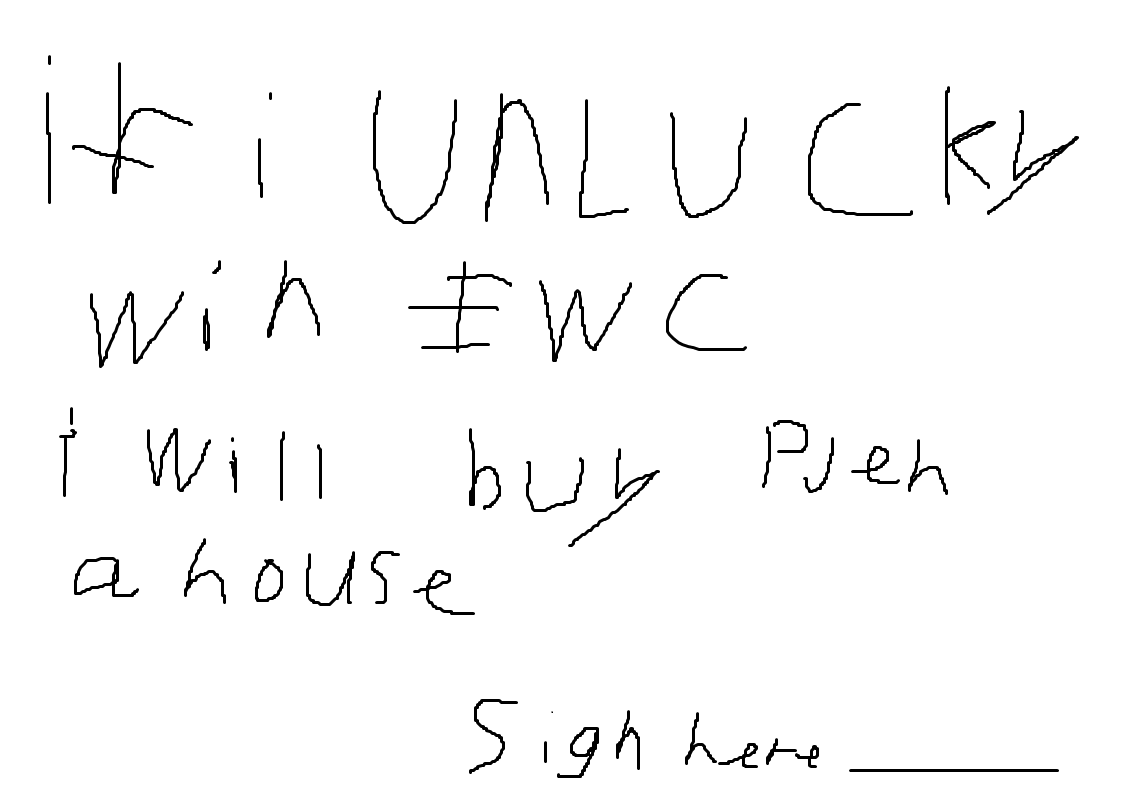 if i UNLUCKy
win EWC
i will buy PJen
a house
Sign here